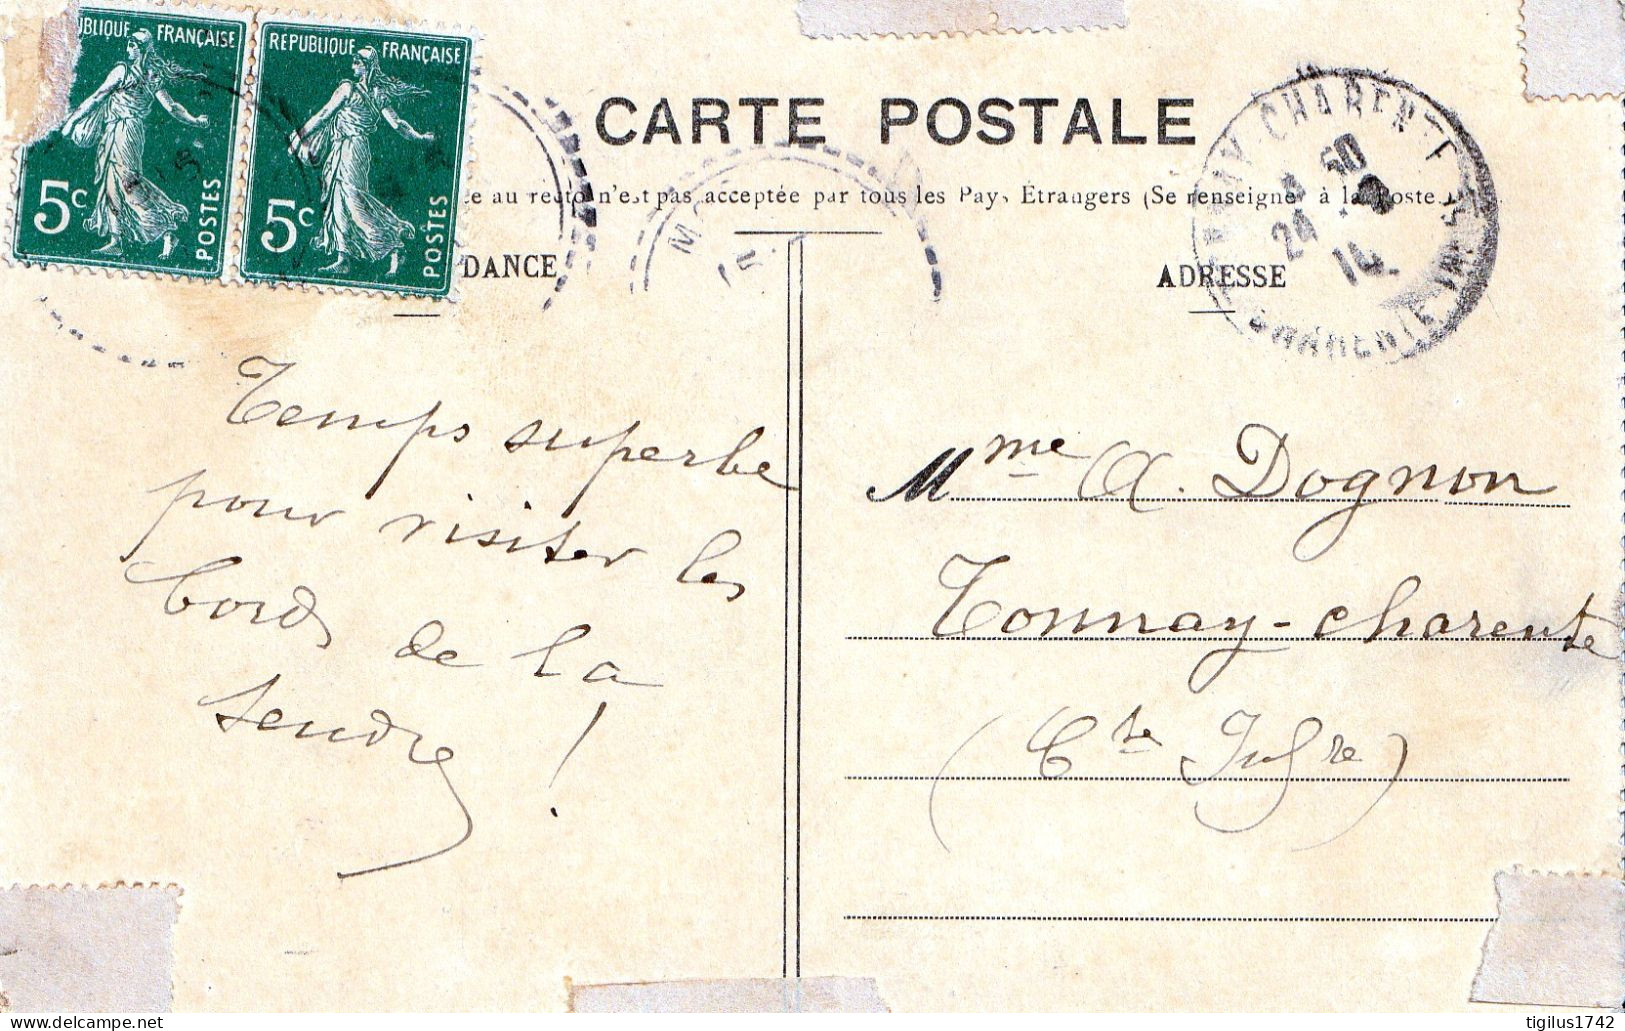 UBLIQUE FRANÇAISE
5c POSTES
RÉPUBLIQUE FRANÇAISE
5c POSTES
CARTE POSTALE
au recto n'est pas acceptée par tous les Pays Étrangers (Se renseigner à la Poste.)
DANCE
ADRESSE
NAY-CHARENTE
50
24 - 9
10
CHARENTE INFRE
MO
Temps superbe
pour visiter les
bords de la
Seudre !
Mme A. Dognon
Tonnay-Charente
(Cte Infre)
delcampe.net
tigilus1742